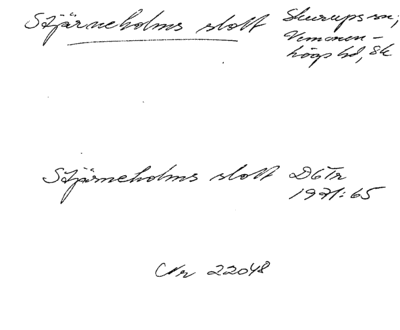 Stjärneholms slott Skurups sn,
Vemmen-
högs hd, Sk
Stjärneholms slott DGTr
1971:65
Nr 22048